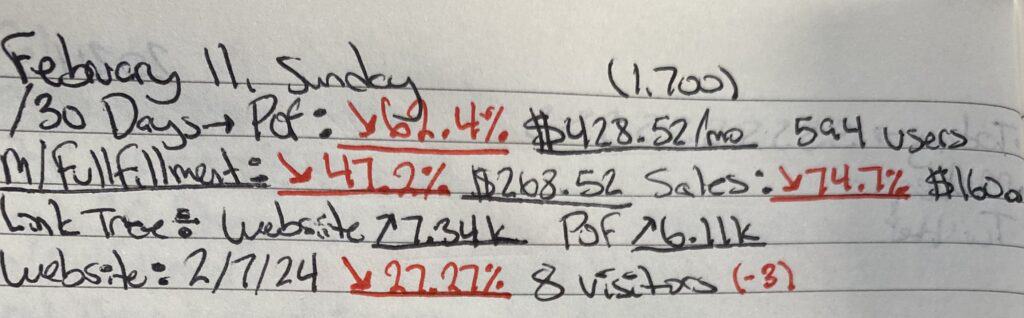 February 11, Sunday (1,700)
/30 Days → Pof: ↘62.4% $428.52/mo 594 users
M/Fullfillment: ↘47.2% $268.52 Sales: ↘74.7% $160
Link Tree: Website ↗7.34k Pof ↗6.11k
Website: 2/7/24 ↘27.27% 8 visitors (-3)